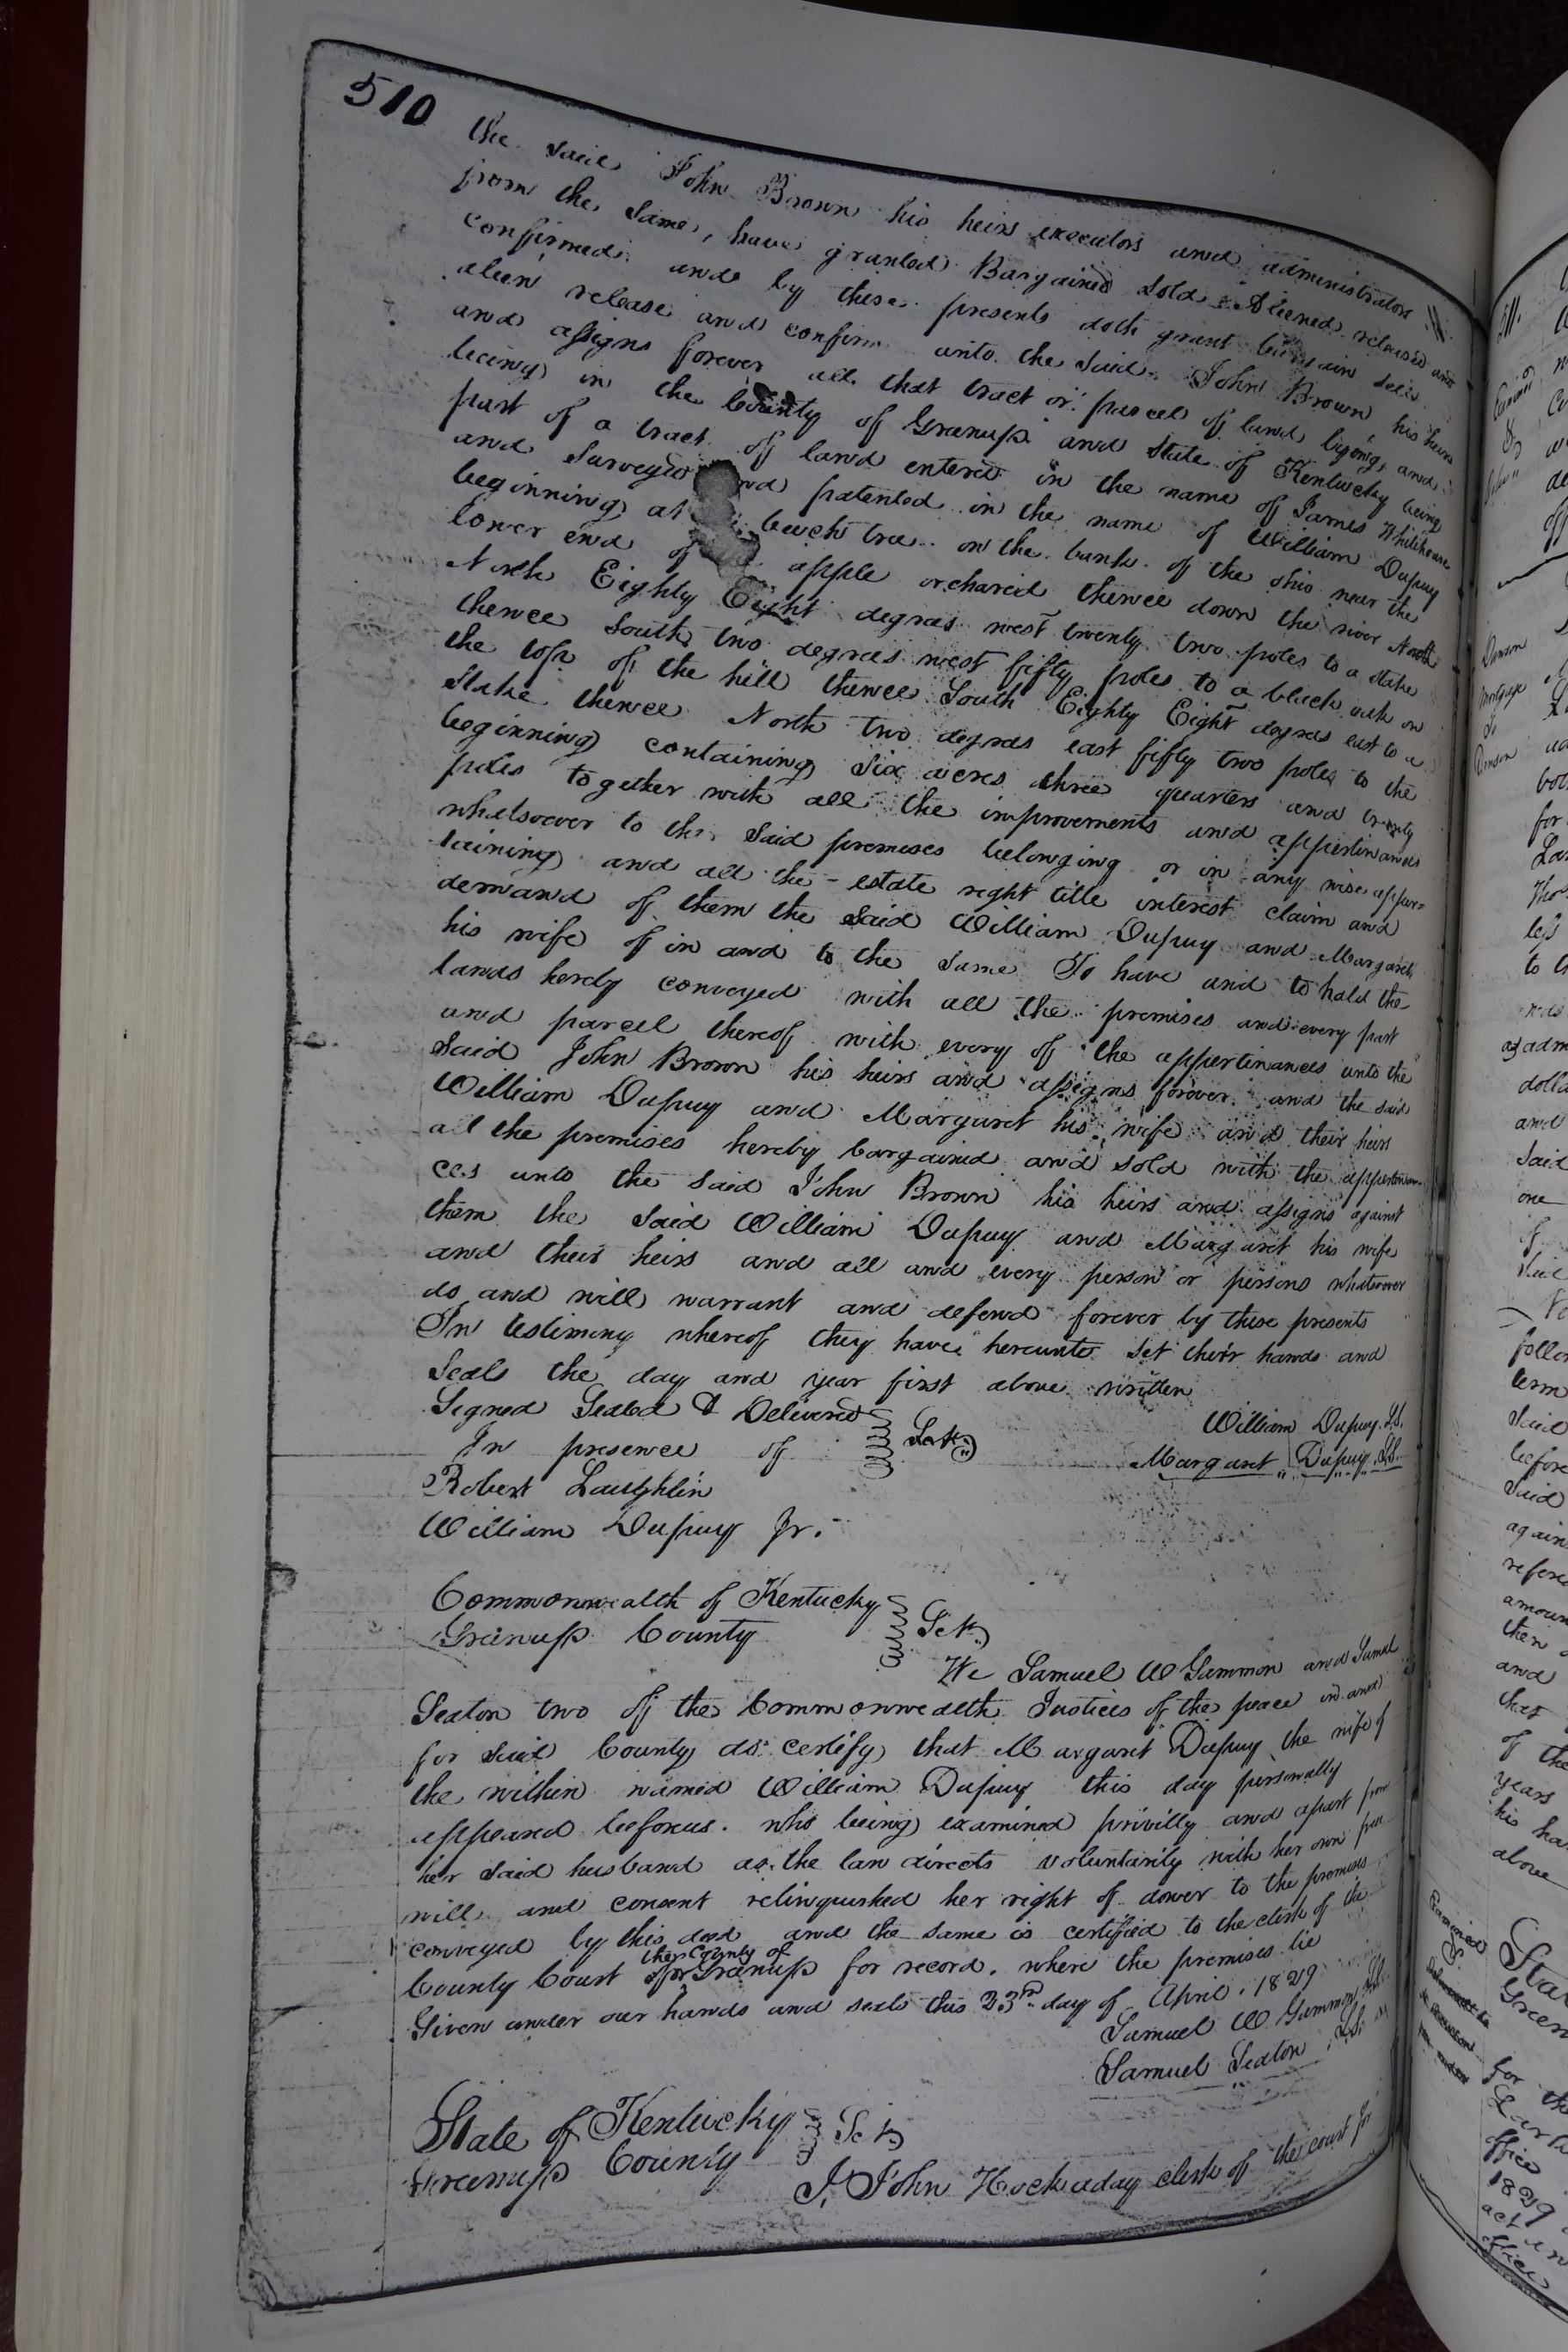 510
the said John Brown his heirs executors and administrators
from the same, have granted Bargained Sold Aliened released and
confirmed and by these presents doth grant bargain sell
alien release and confirm unto the said John Brown his heirs
and assigns forever all that tract or parcel of land lying and
being in the County of Greenup and State of Kentucky being
part of a tract of land entered in the name of James Whitehouse
and Surveyed and patented in the name of William Dupuy
beginning at beech tree on the bank of the ohio near the
lower end of apple orchared thence down the river North
North Eighty Eight degrees west twenty two poles to a stake
thence South two degrees west fifty poles to a black oak on
the top of the hill thence South Eighty Eight degrees east to a
Stake thence North two degrees east fifty two poles to the
beginning containing Six acres three quarters and twenty
poles together with all the improvements and appertinances
whatsoever to the said premises belonging or in any wise apper=
taining and all the estate right title interest claim and
demand of them the said William Dupuy and Margaret
his wife of in and to the same To have and to hald the
lands herby conveyed with all the premises and every part
and parcell thereof with every of the appertinances unto the
Said John Brown his heirs and assigns forever and the said
William Dupuy and Margaret his wife and their heirs
all the premises hereby bargained and sold with the appertenan-
ces unto the said John Brown his heirs and assigns against
them the said William Dupuy and Margaret his wife
and their heirs and all and every person or persons whatever
do and will warrant and defend forever by these presents
In testimony whereof they have hereunto set their hands and
Seals the day and year first above written
Signed Sealed & Delivered Sct William Dupuy L.S.
In presence of Margaret Dupuy L.S.
Robert Laughlin
William Dupuy Jr.
Commonwealth of Kentucky
Greenup County Sct
We Samuel W Gammon and Samuel
Seaton two of the Commonwealth Justices of the peace in and
for said County do certify that Margaret Dupuy the wife of
the within named William Dupuy this day personally
appeared before us who being examined privilly and apart from
her said husband as the law directs voluntarily with her own free
will and consent relinquished her right of dower to the premises
conveyed by this deed and the same is certified to the clerk of the
the County of
County Court for Greenup for record. where the premises lie
Given under our hands and seals this 23rd day of April. 1829
Samuel W Gammon
Samuel Seaton
State of Kentucky
Greenup County Sct
I, John Hockaday clerk of the court for